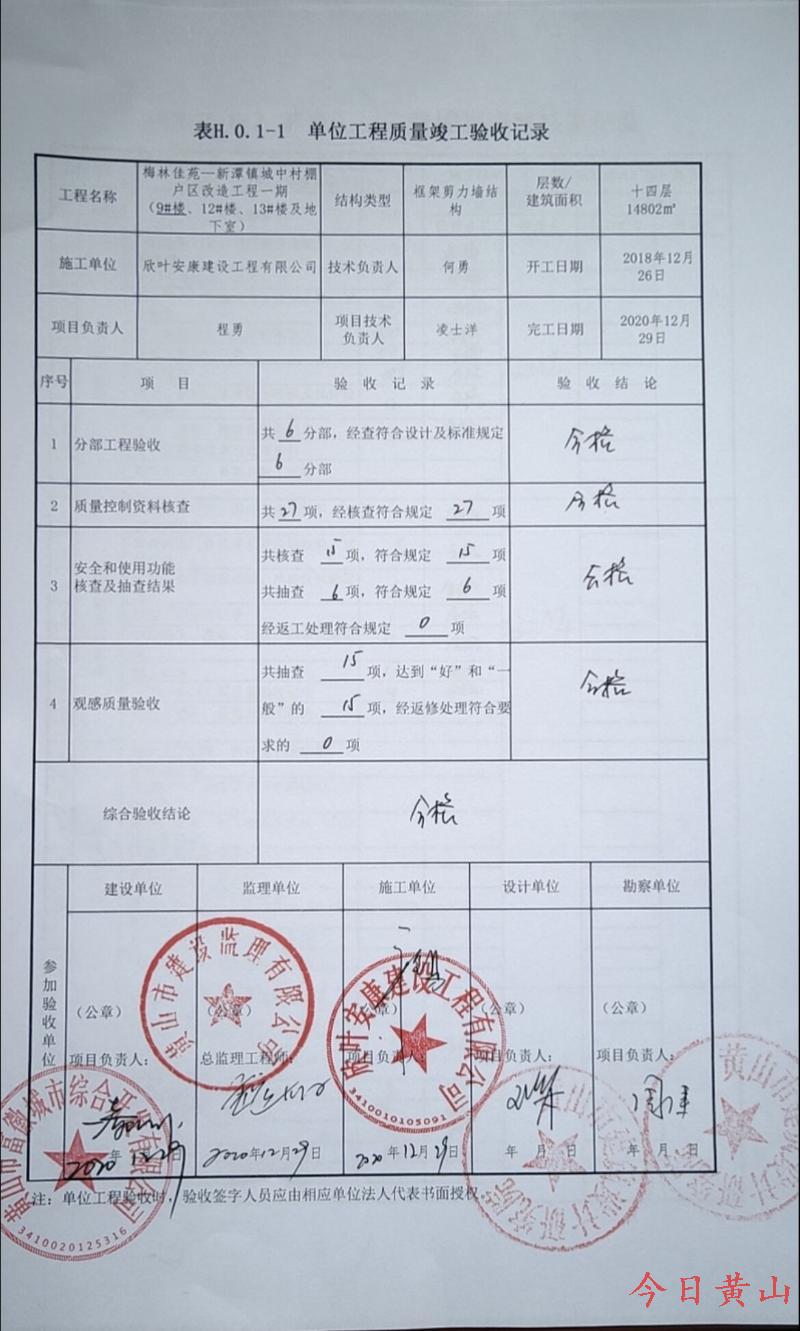 表H.0.1-1 单位工程质量竣工验收记录
工程名称
梅林佳苑—新潭镇城中村棚
户区改造工程一期
（9#楼、12#楼、13#楼及地
下室）
结构类型
框架剪力墙结
构
层数/
建筑面积
十四层
14802㎡
施工单位
欣叶安康建设工程有限公司
技术负责人
何勇
开工日期
2018年12月
26日
项目负责人
程勇
项目技术
负责人
凌士洋
完工日期
2020年12月
29日
序号
项 目
验 收 记 录
验 收 结 论
1
分部工程验收
共 6 分部，经查符合设计及标准规定
6 分部
合格
2
质量控制资料核查
共 27 项，经核查符合规定 27 项
合格
3
安全和使用功能
核查及抽查结果
共核查 15 项，符合规定 15 项
共抽查 6 项，符合规定 6 项
经返工处理符合规定 0 项
合格
4
观感质量验收
共抽查 15 项，达到“好”和“一
般”的 15 项，经返修处理符合要
求的 0 项
合格
综合验收结论
合格
参加验收单位
建设单位
监理单位
施工单位
设计单位
勘察单位
（公章）
（公章）
（公章）
（公章）
（公章）
项目负责人：
总监理工程师：
项目负责人：
项目负责人：
项目负责人：
2020年12月29日
2020年12月29日
2020年12月29日
年 月 日
年 月 日
黄山市建设监理有限公司
欣叶安康建设工程有限公司
3410010105091
3410020125316
注：单位工程验收时，验收签字人员应由相应单位法人代表书面授权。
今日黄山